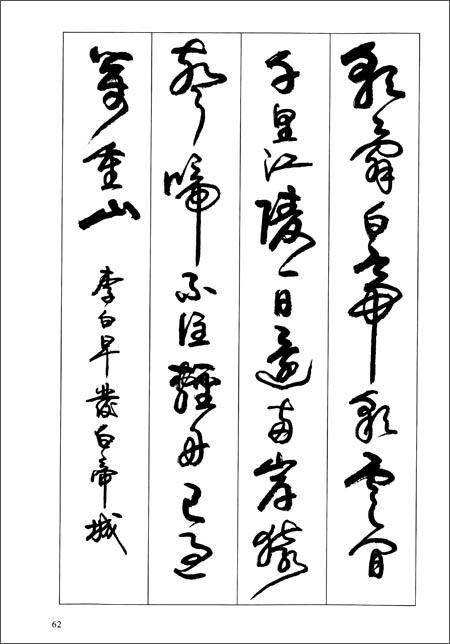 朝辭白帝彩雲間
千里江陵一日還兩岸猿
聲啼不住輕舟已過
萬重山 李白早發白帝城
62